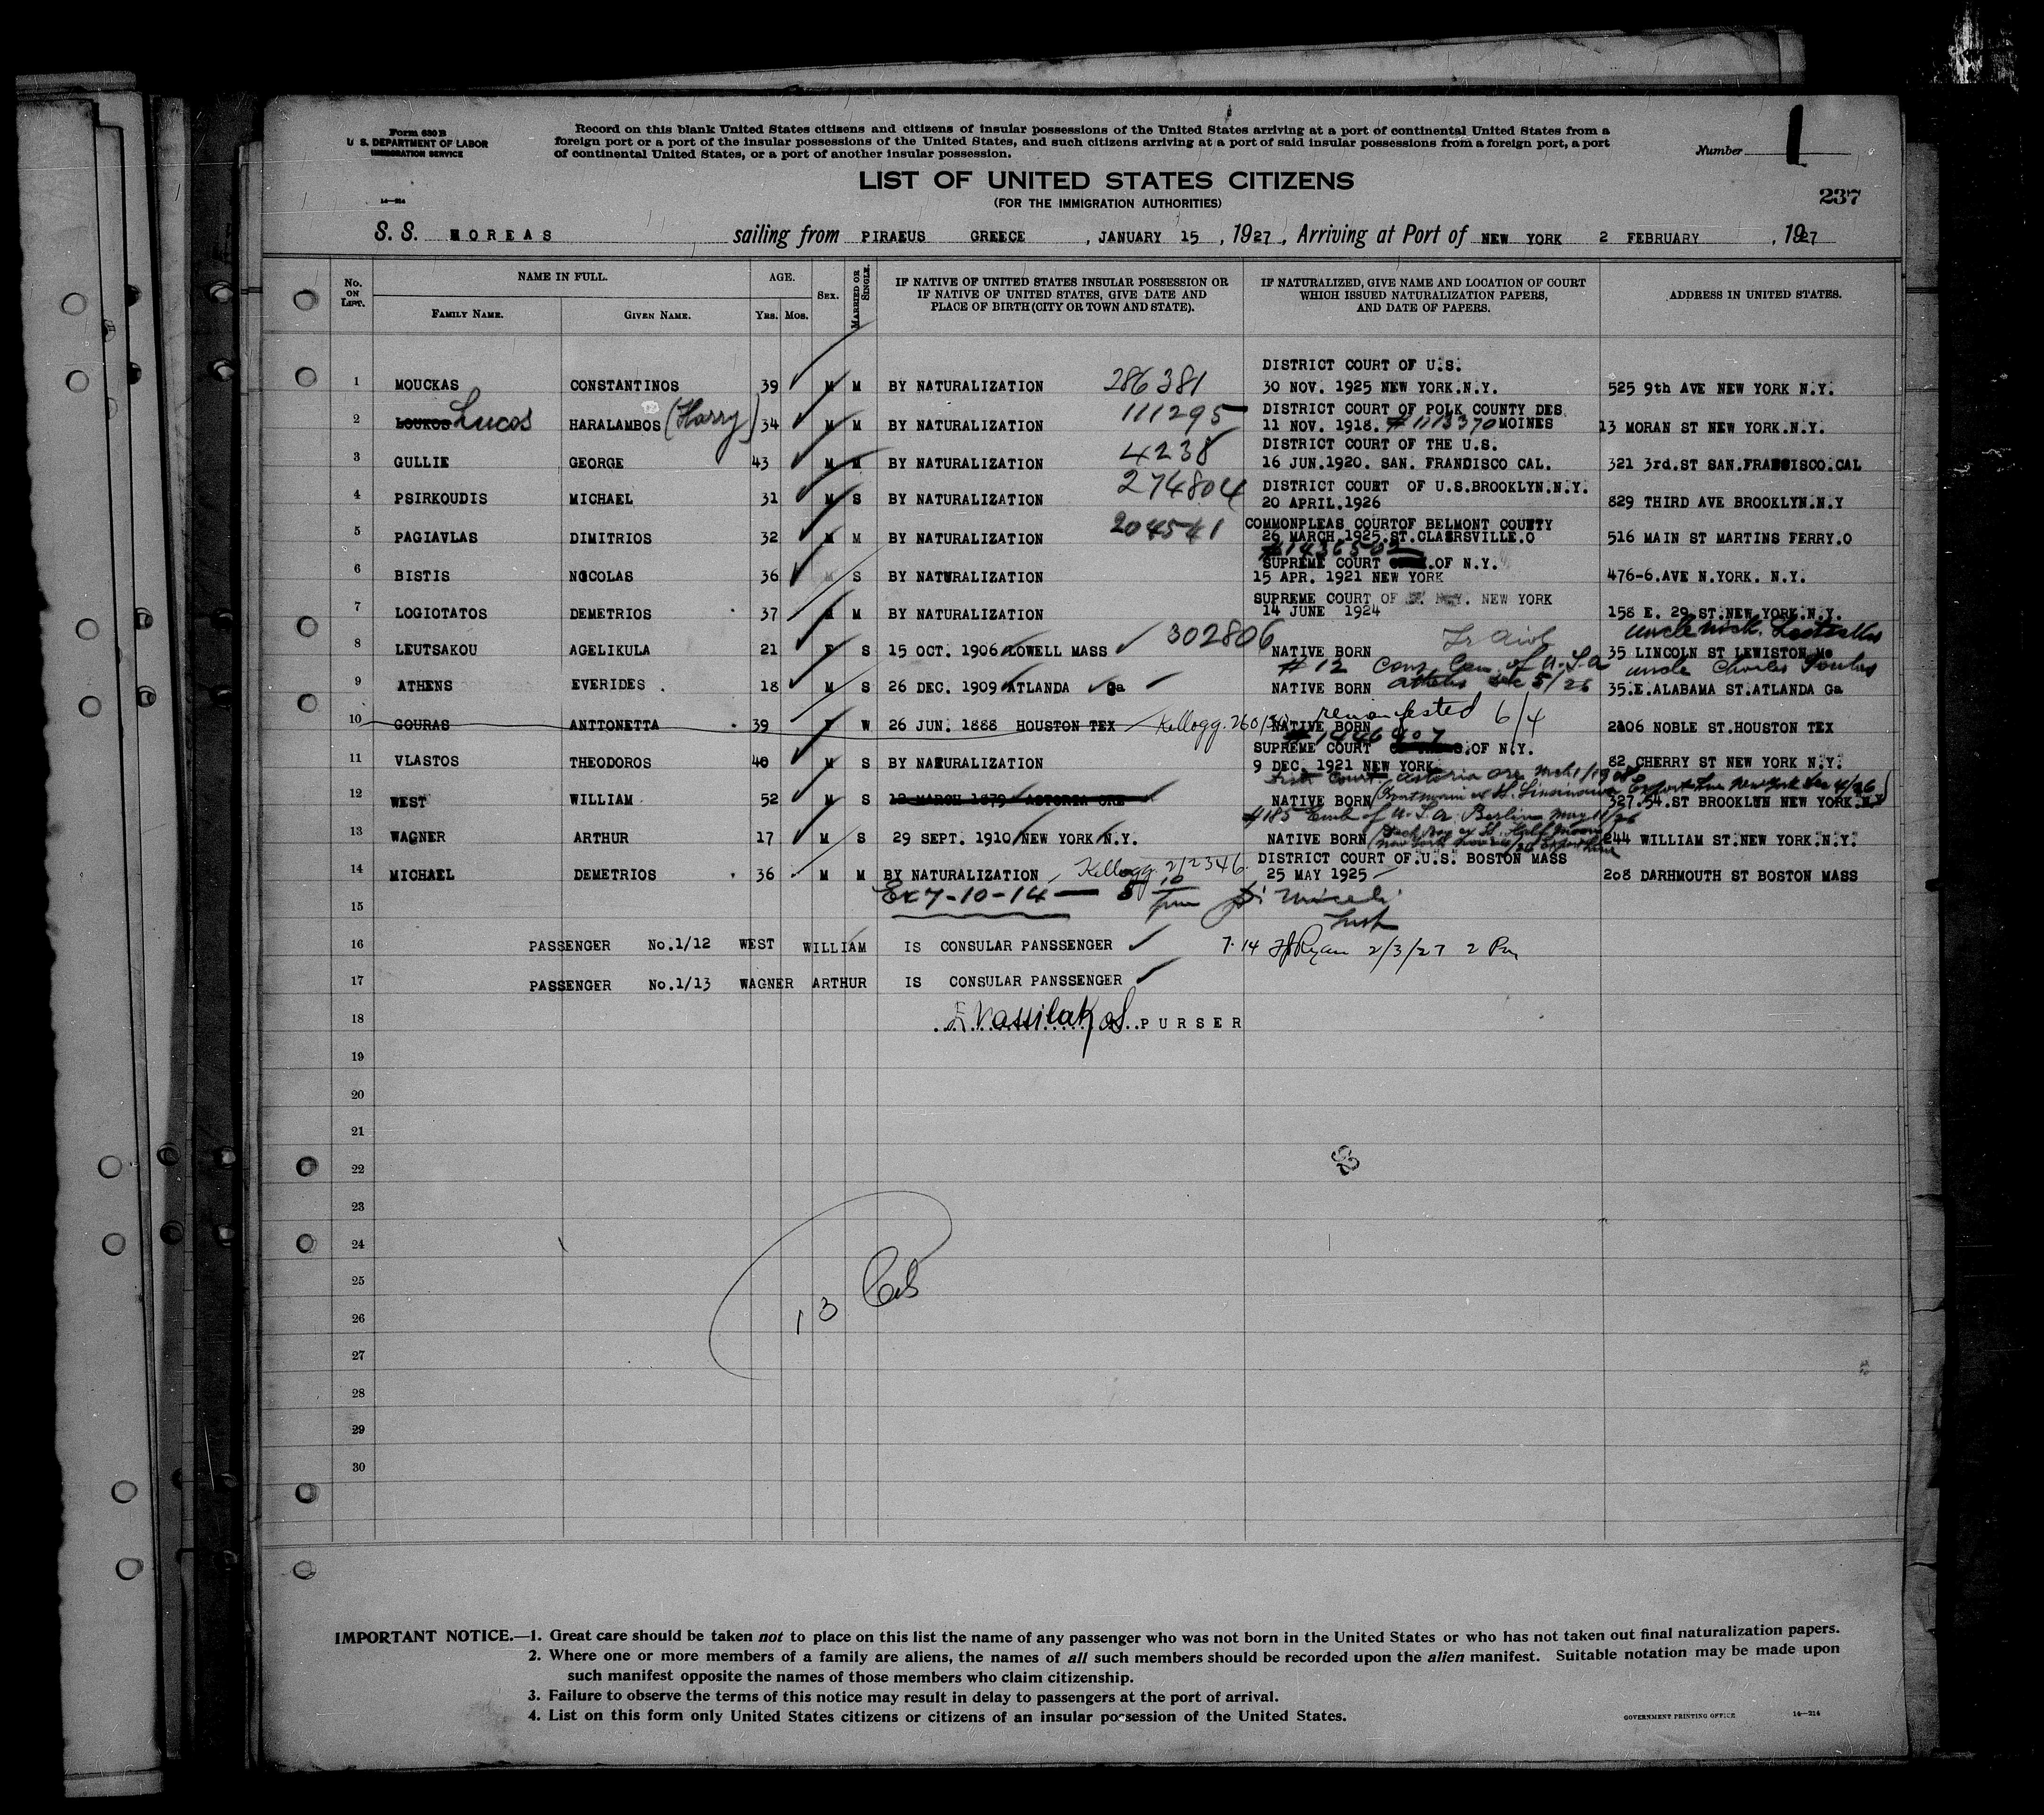 Form 630 B
U. S. DEPARTMENT OF LABOR
IMMIGRATION SERVICE
14—214
Record on this blank United States citizens and citizens of insular possessions of the United States arriving at a port of continental United States from a
foreign port or a port of the insular possessions of the United States, and such citizens arriving at a port of said insular possessions from a foreign port, a port
of continental United States, or a port of another insular possession.
Number 1
LIST OF UNITED STATES CITIZENS
(FOR THE IMMIGRATION AUTHORITIES)
237
S. S. MOREAS sailing from PIRAEUS GREECE , JANUARY 15 , 1927 , Arriving at Port of NEW YORK 2 FEBRUARY , 1927
No. ON LIST.
NAME IN FULL.
FAMILY NAME.
GIVEN NAME.
AGE.
YRS. MOS.
SEX.
MARRIED OR SINGLE.
IF NATIVE OF UNITED STATES INSULAR POSSESSION OR
IF NATIVE OF UNITED STATES, GIVE DATE AND
PLACE OF BIRTH (CITY OR TOWN AND STATE).
IF NATURALIZED, GIVE NAME AND LOCATION OF COURT
WHICH ISSUED NATURALIZATION PAPERS,
AND DATE OF PAPERS.
ADDRESS IN UNITED STATES.
DISTRICT COURT OF U.S.
1 MOUCKAS CONSTANTINOS 39 M M BY NATURALIZATION 286381 30 NOV. 1925 NEW YORK.N.Y. 525 9th AVE NEW YORK N.Y.
DISTRICT COURT OF POLK COUNTY DES
2 LOUKOS Lucos HARALAMBOS (Harry) 34 M M BY NATURALIZATION 111295 11 NOV. 1918. #1113370 MOINES 13 MORAN ST NEW YORK.N.Y.
DISTRICT COURT OF THE U.S.
3 GULLIE GEORGE 43 M M BY NATURALIZATION 4238 16 JUN.1920. SAN. FRANDISCO CAL. 321 3rd.ST SAN.FRANSISCO.CAL
DISTRICT COURT OF U.S.BROOKLYN.N.Y.
4 PSIRKOUDIS MICHAEL 31 M S BY NATURALIZATION 274804 20 APRIL.1926 829 THIRD AVE BROOKLYN.N.Y
COMMONPLEAS COURTOF BELMONT COUNTY
5 PAGIAVLAS DIMITRIOS 32 M M BY NATURALIZATION 204541 26 MARCH 1925.ST.CLAERSVILLE.O 516 MAIN ST MARTINS FERRY.O
SUPREME COURT OF N.Y.
6 BISTIS NOCOLAS 36 M S BY NATURALIZATION 15 APR. 1921 NEW YORK 476-6.AVE N.YORK. N.Y.
SUPREME COURT OF N.Y. NEW YORK
7 LOGIOTATOS DEMETRIOS 37 M M BY NATURALIZATION 14 JUNE 1924 158 E. 29 ST.NEW YORK.N.Y.
302806
8 LEUTSAKOU AGELIKULA 21 F S 15 OCT. 1906 LOWELL MASS NATIVE BORN 35 LINCOLN ST LEWISTON Me
uncle Charles
9 ATHENS EVERIDES . 18 M S 26 DEC. 1909 ATLANDA Ga NATIVE BORN 35.E.ALABAMA ST.ATLANDA Ga
6/4
10 GOURAS ANTTONETTA 39 F W 26 JUN. 1888 HOUSTON TEX Kellogg. NATIVE BORN 2106 NOBLE ST.HOUSTON TEX
SUPREME COURT OF N.Y.
11 VLASTOS THEODOROS 40 M S BY NATURALIZATION 9 DEC. 1921 NEW YORK 82 CHERRY ST NEW YORK N.Y.
12 WEST WILLIAM 52 M S 12 MARCH 1879 ASTORIA ORE NATIVE BORN 327.54.ST BROOKLYN NEW YORK.N.Y
#185 Emb of U.S.A. Berlin May 11/26
13 WAGNER ARTHUR 17 M S 29 SEPT. 1910 NEW YORK N.Y. NATIVE BORN 244 WILLIAM ST.NEW YORK.N.Y.
DISTRICT COURT OF.U.S. BOSTON MASS
14 MICHAEL DEMETRIOS 36 M M BY NATURALIZATION Kellogg 2/2346 25 MAY 1925 208 DARHMOUTH ST BOSTON MASS
15 Ex 7-10-14
16 PASSENGER No.1/12 WEST WILLIAM IS CONSULAR PANSSENGER 7-14 Ryan 2/3/27 2 Pm
17 PASSENGER No.1/13 WAGNER ARTHUR IS CONSULAR PANSSENGER
18 Vassilakos PURSER
19
20
21
22
23
24
25
26 13
27
28
29
30
IMPORTANT NOTICE.—1. Great care should be taken not to place on this list the name of any passenger who was not born in the United States or who has not taken out final naturalization papers.
2. Where one or more members of a family are aliens, the names of all such members should be recorded upon the alien manifest. Suitable notation may be made upon
such manifest opposite the names of those members who claim citizenship.
3. Failure to observe the terms of this notice may result in delay to passengers at the port of arrival.
4. List on this form only United States citizens or citizens of an insular possession of the United States.
GOVERNMENT PRINTING OFFICE 14—214